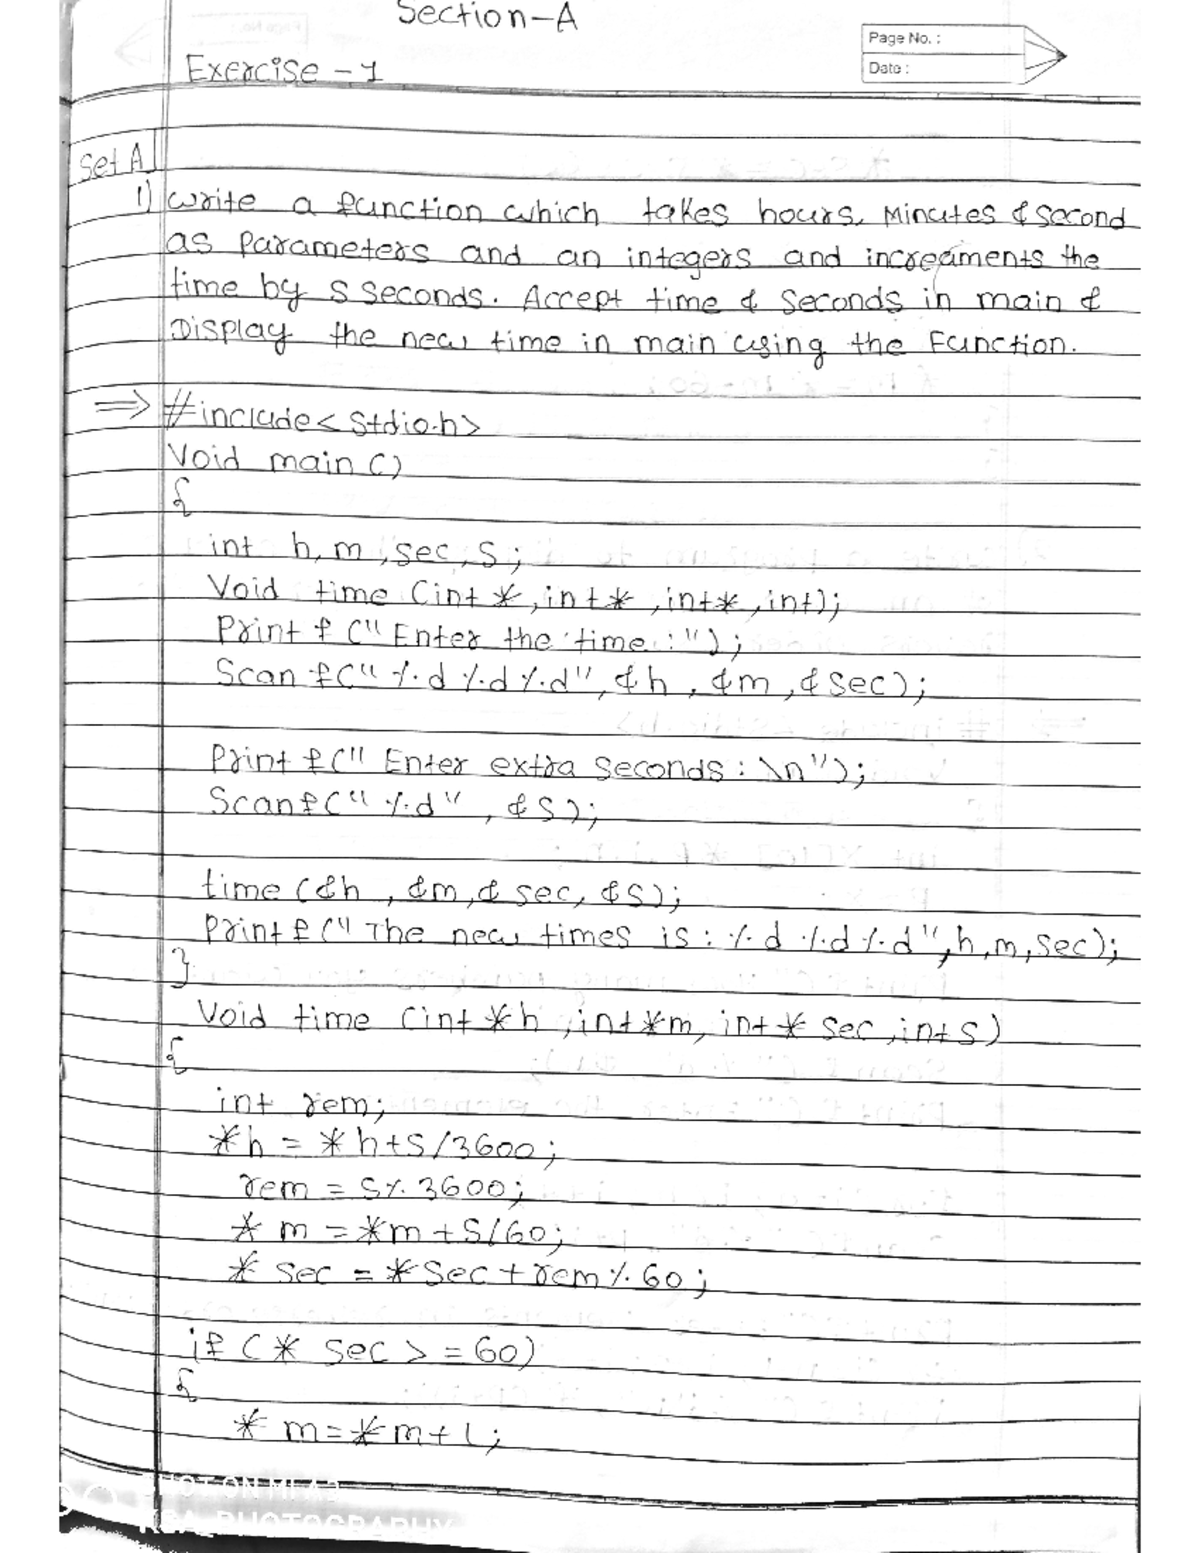 Section-A
Page No. :
Date :
Exercise - 1
Set A
1) Write a function which takes hours, Minutes & Second
as Parameters and an integers and increaments the
time by s seconds. Accept time & Seconds in main &
Display the new time in main using the Function.
⇒ #include<Stdio.h>
Void main ()
{
int h, m, sec, s;
Void time (int *, int*, int*, int);
Print f ("Enter the time :");
Scan f(" %d %d %d", &h, &m, & Sec);
Print f(" Enter extra seconds : \n");
Scanf(" %d", &S);
time (&h, &m, & sec, &S);
Print f (" The new times is : %d %d %d", h, m, sec);
}
Void time (int *h, int*m, int* sec, int s)
{
int rem;
*h = *h+S/3600;
rem = S% 3600;
* m = *m + S/60;
* sec = *Sec + rem % 60;
if (* sec > = 60)
{
* m = *m+1;